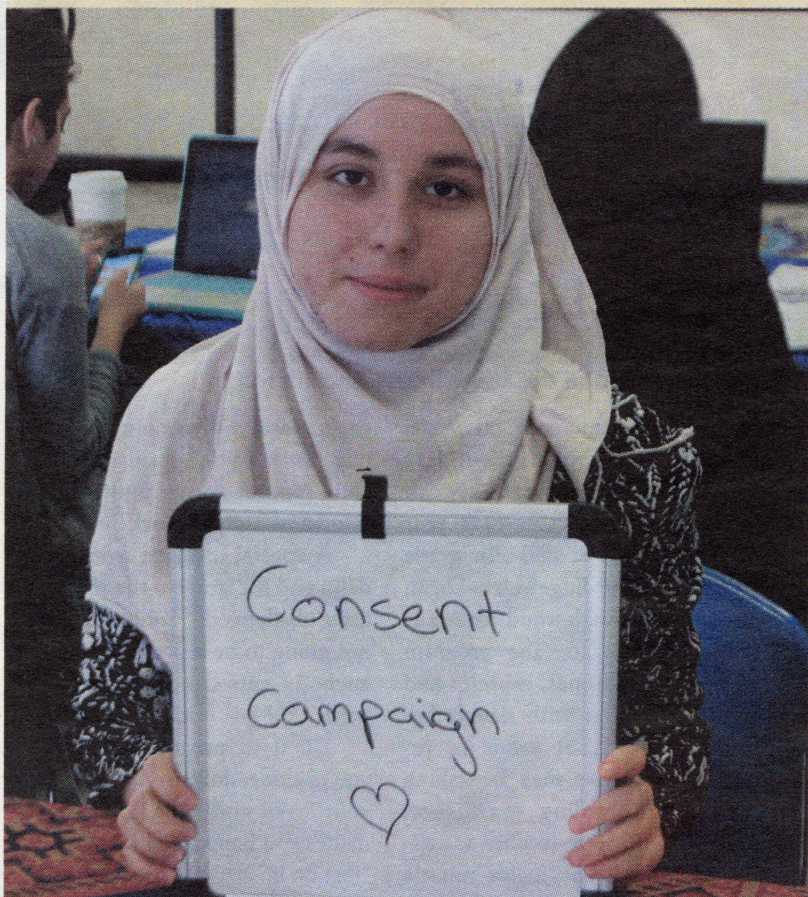 Consent
Campaign